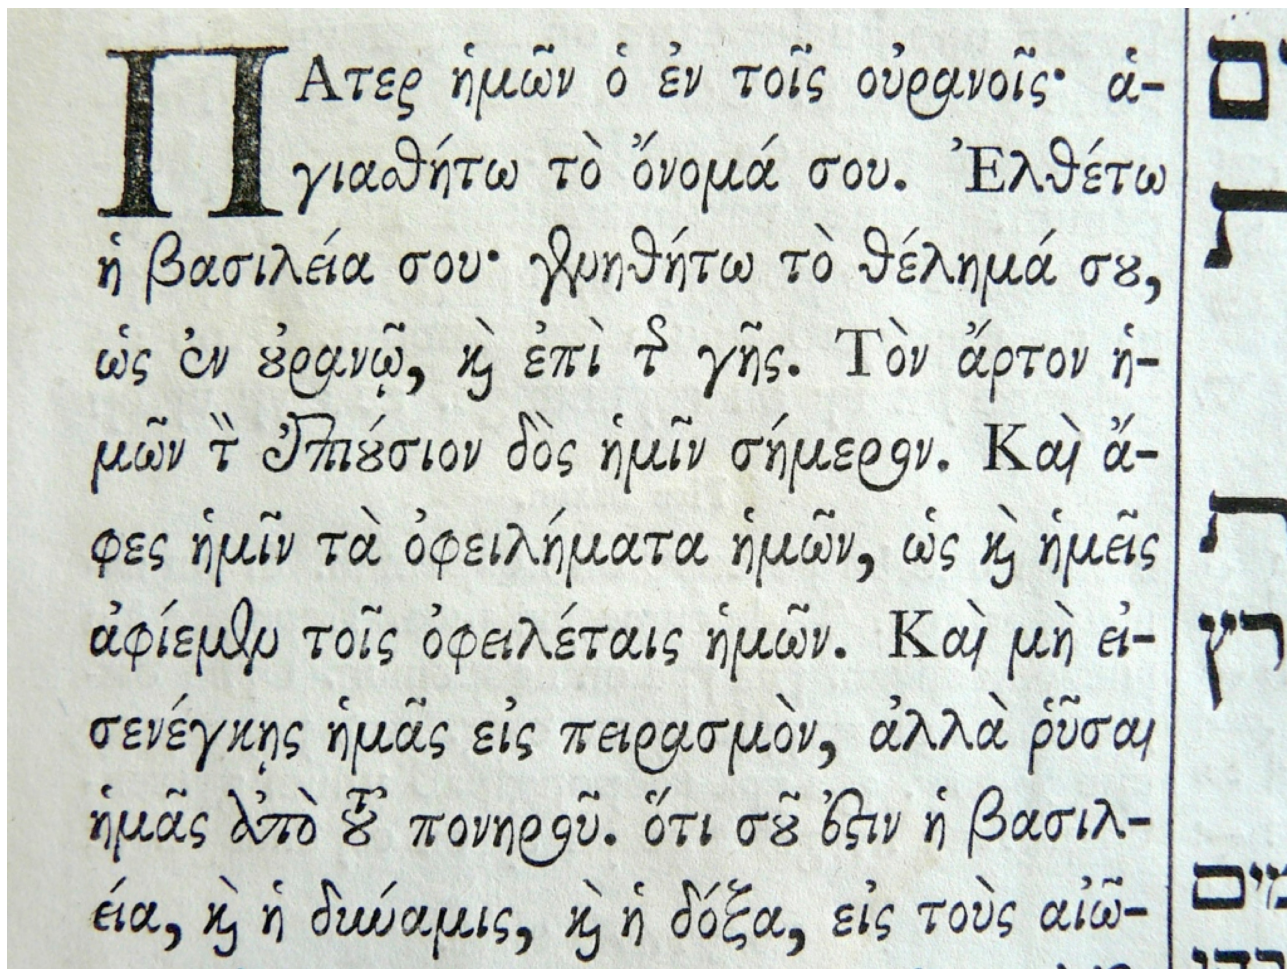 ΠΑτερ ἡμῶν ὁ ἐν τοῖς οὐρανοῖς· ἁ-
γιασθήτω τὸ ὄνομά σου. Ἐλθέτω
ἡ βασιλεία σου· γενηθήτω τὸ θέλημά σȣ,
ὡς ἐν ȣ̓ρανῷ, ϗ̀ ἐπὶ τῆς γῆς. Τὸν ἄρτον ἡ-
μῶν τὸν ἐπιȣ́σιον δὸς ἡμῖν σήμερον. Καὶ ἄ-
φες ἡμῖν τὰ ὀφειλήματα ἡμῶν, ὡς ϗ̀ ἡμεῖς
ἀφίεμεν τοῖς ὀφειλέταις ἡμῶν. Καὶ μὴ εἰ-
σενέγκῃς ἡμᾶς εἰς πειρασμὸν, ἀλλὰ ῥῦσαι
ἡμᾶς ἀπὸ τȣ͂ πονηροῦ. ὅτι σȣ͂ ἐϛιν ἡ βασιλ-
εία, ϗ̀ ἡ δύναμις, ϗ̀ ἡ δόξα, εἰς τοὺς αἰῶ-